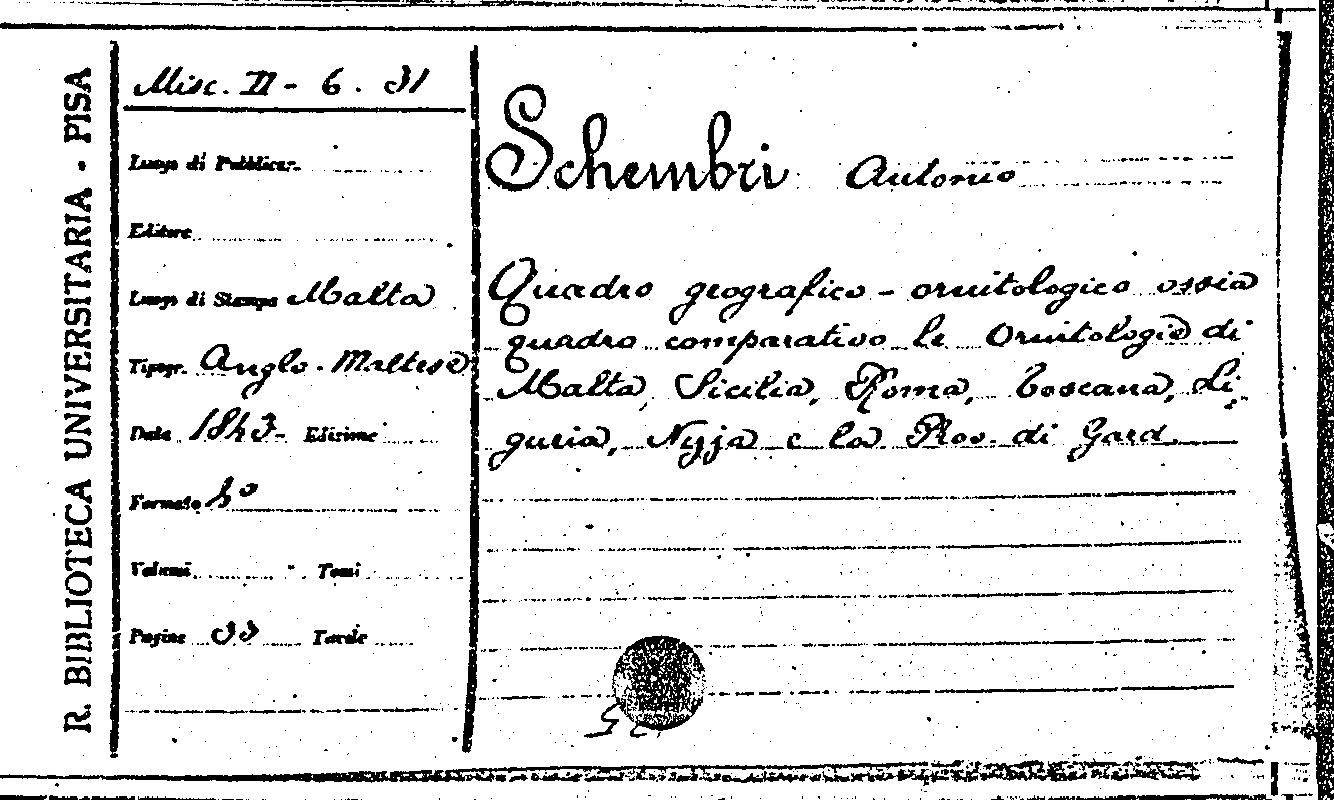 R. BIBLIOTECA UNIVERSITARIA - PISA
Misc. II - 6. 31
Luogo di Pubblicaz.
Editore
Luogo di Stampa Malta
Tipogr. Anglo-Maltese
Data 1843- Edizione
Formato 4º
Volumi Tomi
Pagine 33 Tavole
Schembri Antonio
Quadro geografico - ornitologico ossia
quadro comparativo le Ornitologie di
Malta, Sicilia, Roma, Toscana, Li-
guria, Nizza e la Prov. di Gard